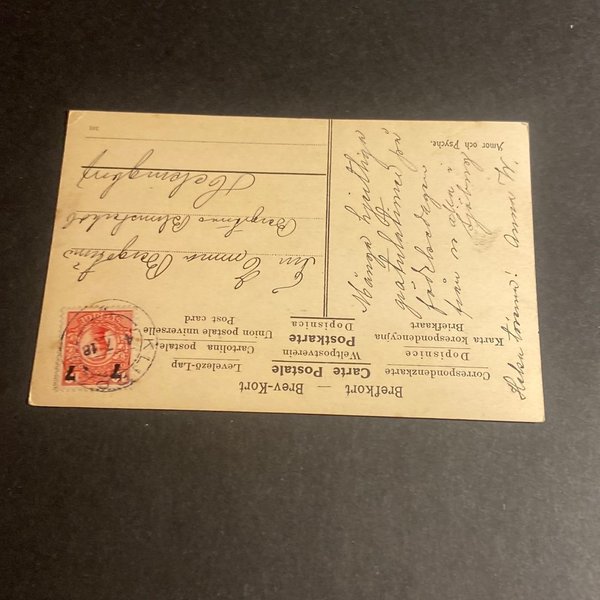 Brefkort — Brev-Kort
Carte Postale
Correspondenzkarte
Levelező-Lap
Weltpostverein
Dopisnice
Cartolina postale
Postkarte
Karta korespondencyjna
Union postale universelle
Dopisnica
Briefkaart
Post card
7 7
7 18
Amor och Psyche.
Många hjertliga
gratulationer på
födelsedagen
från oss alla i
Sjöbing
Anna W.
Helsa mamma!
Emma Bergström
Bergströms Blomsterhdl
Helsingborg